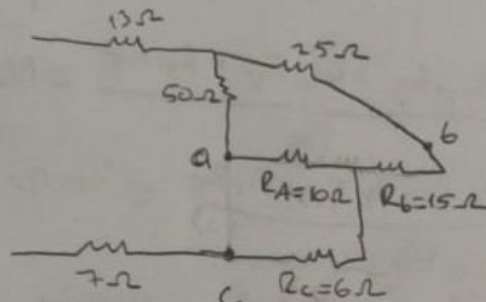 13Ω
25Ω
50Ω
b
a
R_A=10Ω R_b=15Ω
7Ω
c
R_c=6Ω